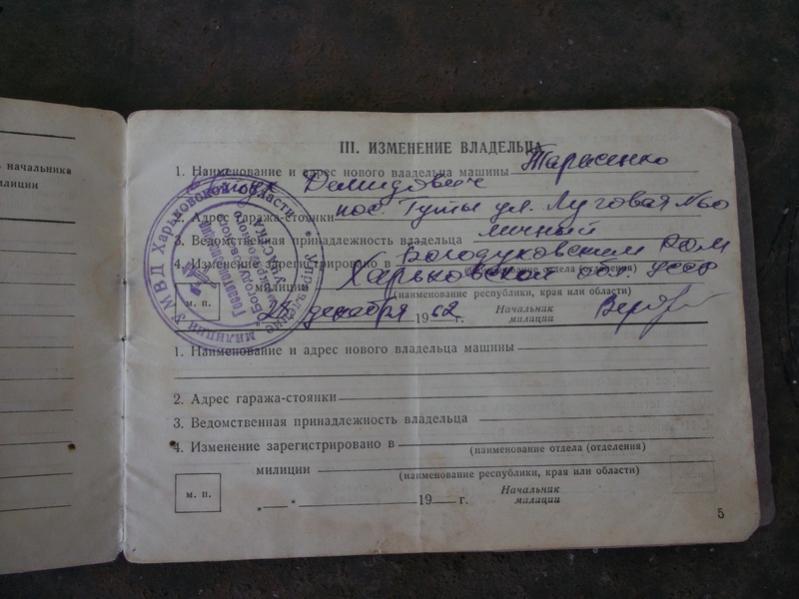 начальника
милиции
III. ИЗМЕНЕНИЕ ВЛАДЕЛЬЦА
1. Наименование и адрес нового владельца машины Тарасенко
Демидович
пос. Гуты ул. Луговая №
2. Адрес гаража-стоянки
3. Ведомственная принадлежность владельца личный
4. Изменение зарегистрировано в Богодуховским РОМ
(наименование отдела (отделения)
милиции Харьковской обл. УССР
(наименование республики, края или области)
м. п.
декабря 1962 г.
Начальник
милиции
Управление милиции УМВД Харьковской области
1. Наименование и адрес нового владельца машины
2. Адрес гаража-стоянки
3. Ведомственная принадлежность владельца
4. Изменение зарегистрировано в
(наименование отдела (отделения)
милиции
(наименование республики, края или области)
м. п.
19 г.
Начальник
милиции
5